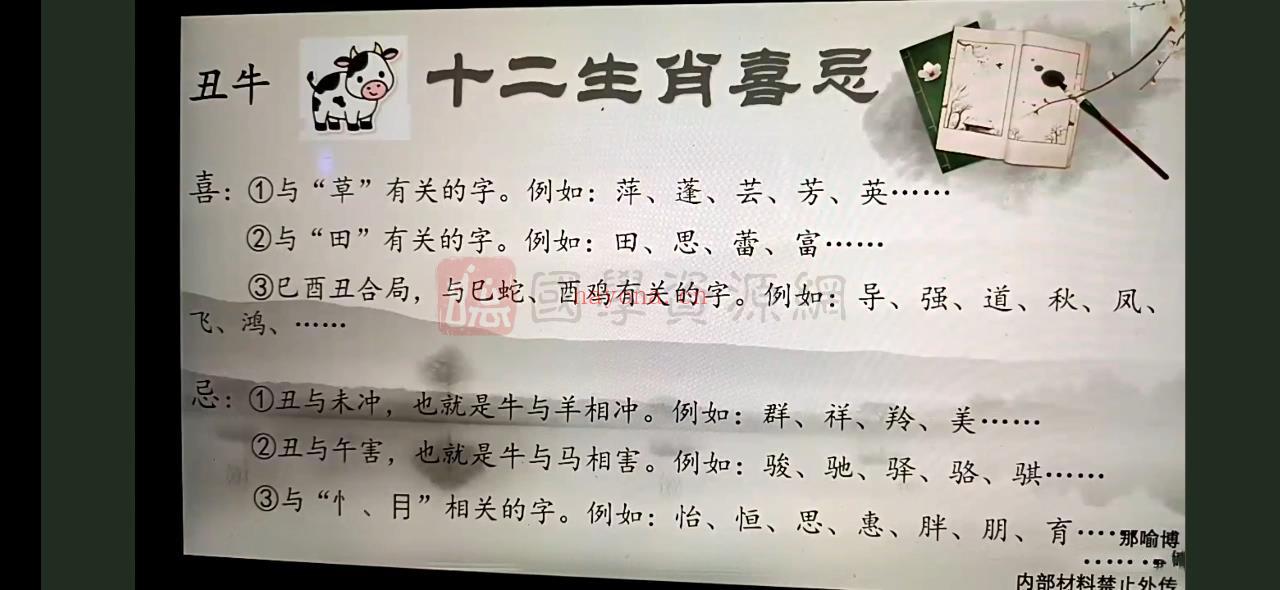 丑牛
十二生肖喜忌
喜：①与“草”有关的字。例如：萍、蓬、芸、芳、英……
②与“田”有关的字。例如：田、思、蕾、富……
③巳酉丑合局，与巳蛇、酉鸡有关的字。例如：导、强、道、秋、凤、
飞、鸿、……
國學資源網
忌：①丑与未冲，也就是牛与羊相冲。例如：群、祥、羚、美……
②丑与午害，也就是牛与马相害。例如：骏、驰、驿、骆、骐……
③与“忄、月”相关的字。例如：怡、恒、思、惠、胖、朋、育……
那喻博
内部材料禁止外传